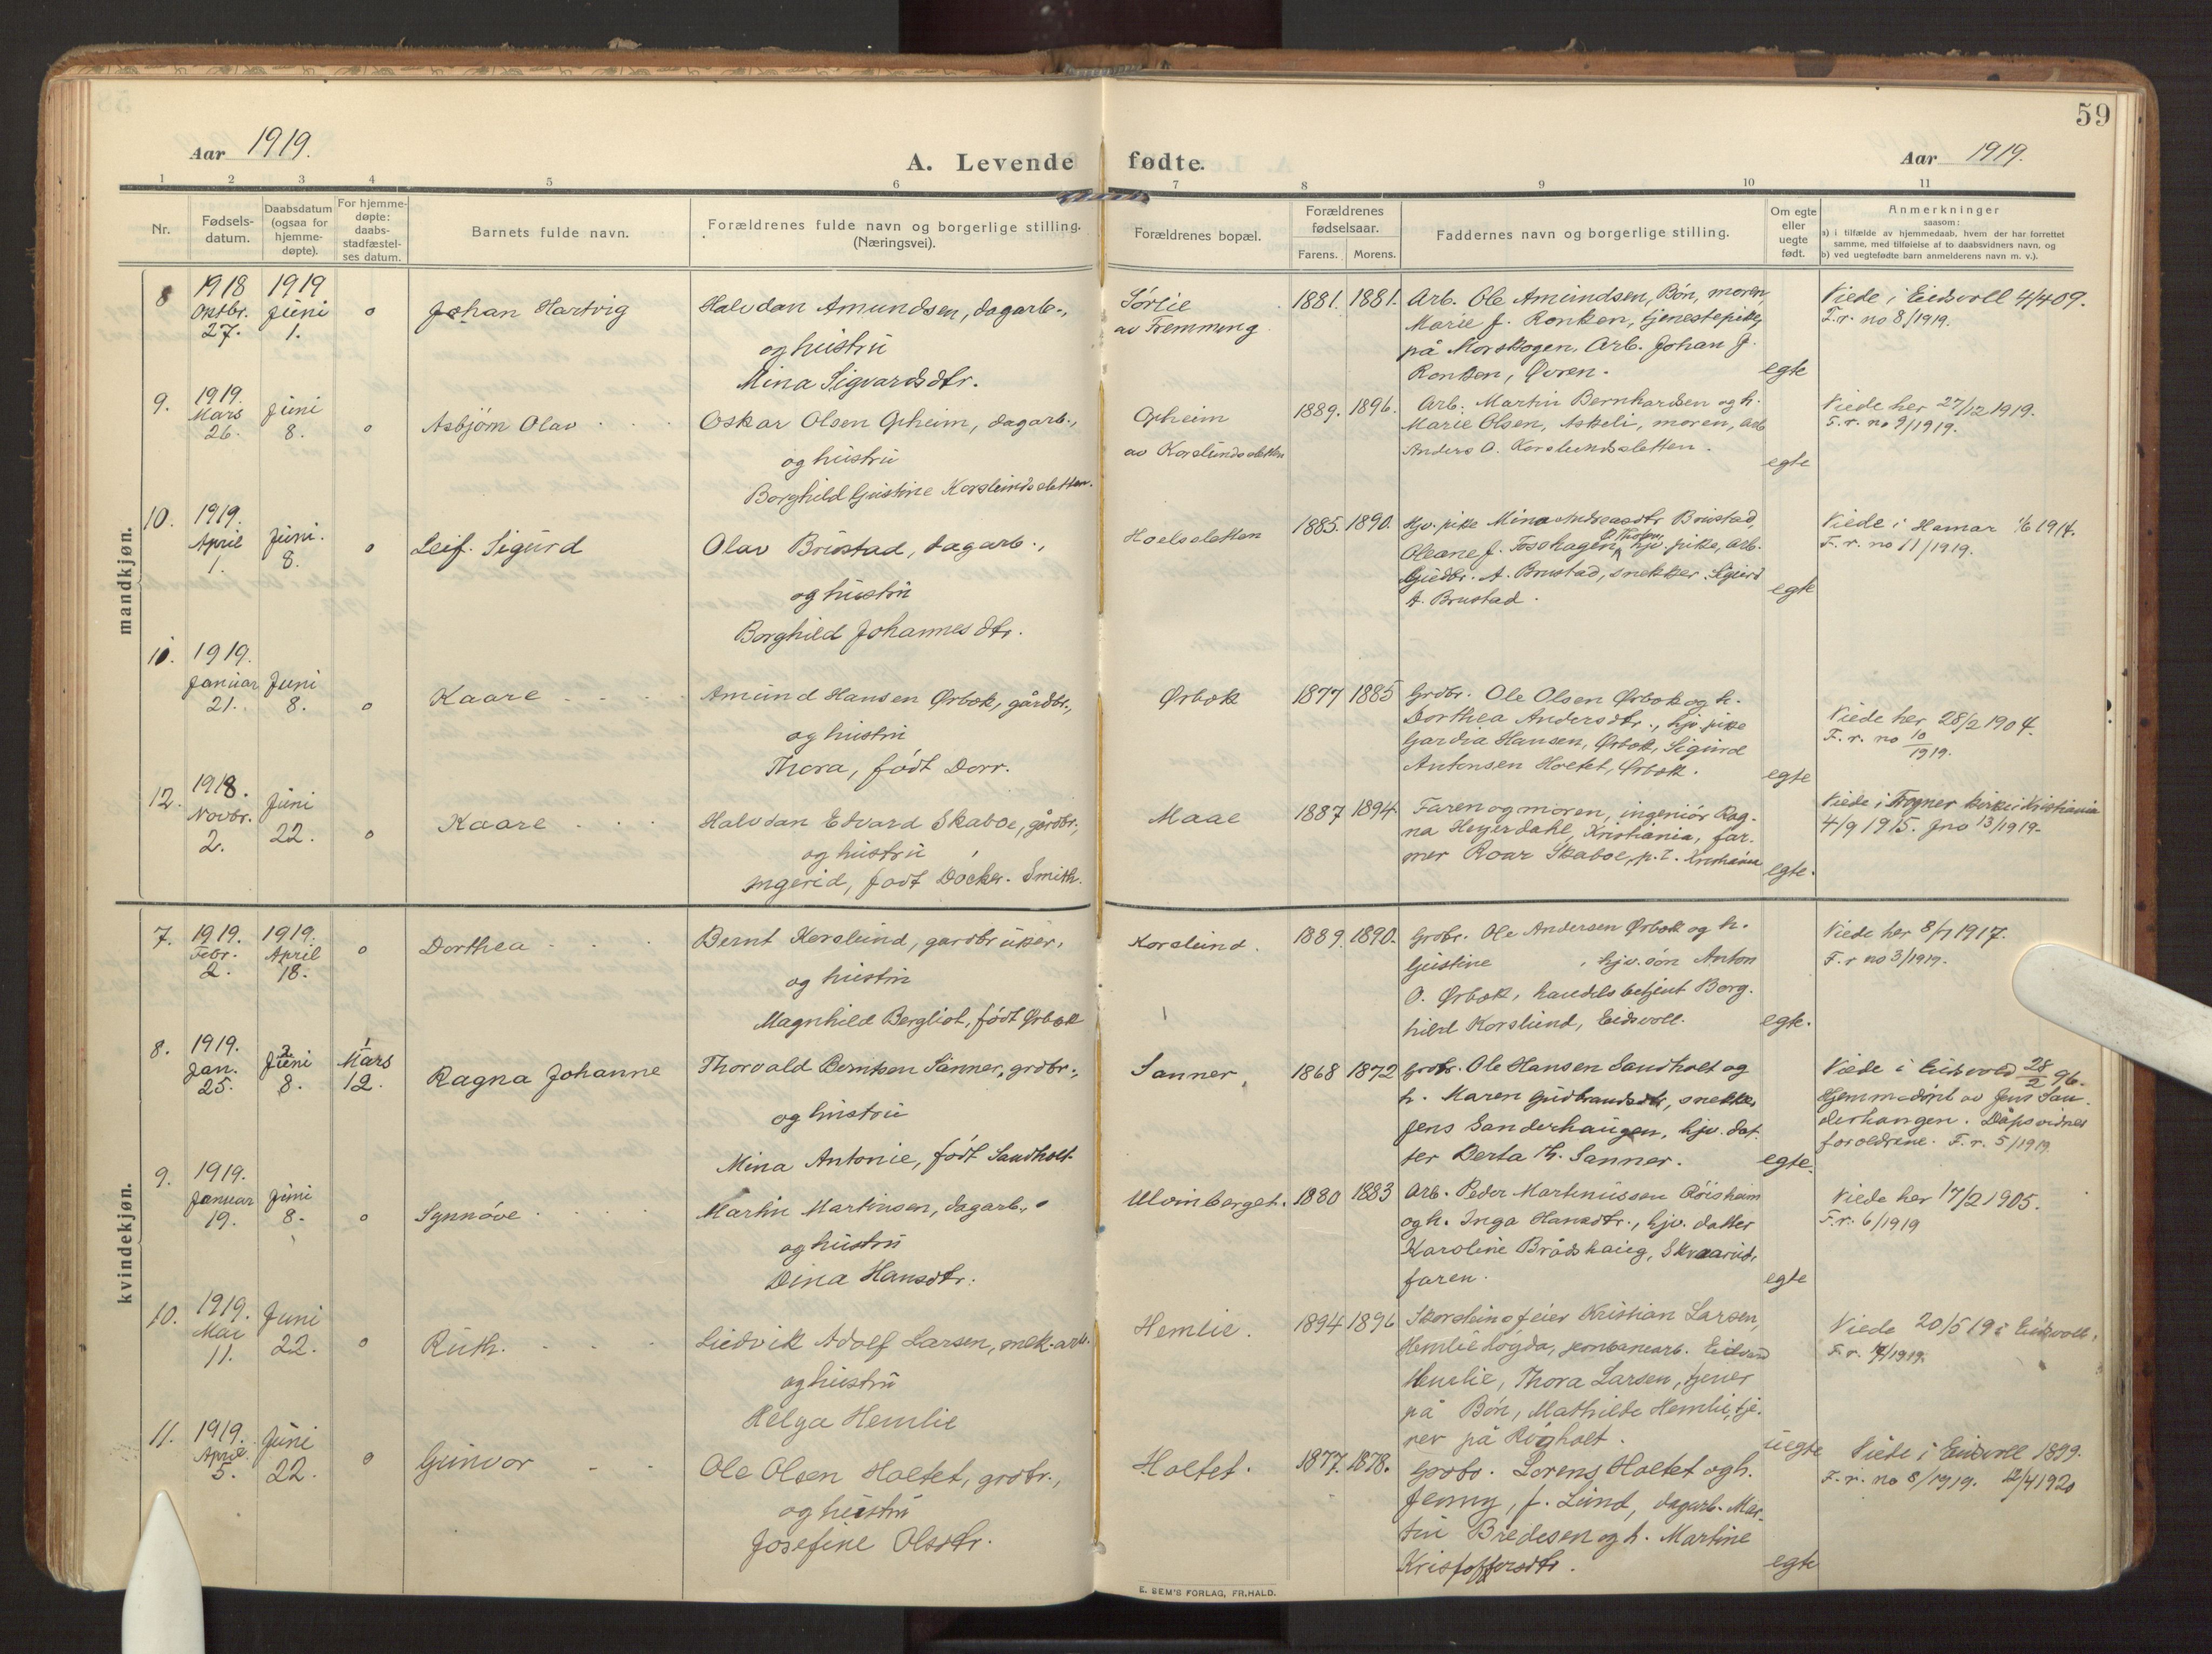 59
Aar 1919.
A. Levende fødte.
Aar 1919.
1 2 3 4 5 6 7 8 9 10 11
Nr.
Fødsels-
datum.
Daabsdatum
(ogsaa for
hjemme-
døpte).
For hjemme-
døpte:
daabs-
stadfæstel-
ses datum.
Barnets fulde navn.
Forældrenes fulde navn og borgerlige stilling.
(Næringsvei).
Forældrenes bopæl.
Forældrenes
fødselsaar.
Farens. Morens.
Faddernes navn og borgerlige stilling.
Om egte
eller
uegte
født.
Anmerkninger
saasom:
a) i tilfælde av hjemmedaab, hvem der har forrettet
samme, med tilføielse af to daabsvidners navn, og
b) ved uegtefødte barn anmelderens navn m. v.).
mandkjøn.
8
1918
Oktbr.
27.
1919
Juni
1.
o
Johan Hartvig
Halvdan Amundsen, dagarb.,
og hustru
Mina Sigvardsdtr.
Sørlie
av Fremming
1881. 1881.
Arb. Ole Amundsen, Bøn, moren,
Marie J. Ronken, tjenestepike,
på Morskogen, Arb. Johan J.
Ronken, Øvren.
egte
Viede i Eidsvoll 4/4 09.
F.r. no 8/1919.
9.
1919.
Mars
26.
Juni
8.
o
Asbjørn Olav
Oskar Olsen Opheim, dagarb.,
og hustru
Borghild Gustine Korslundsletten.
Opheim
av Korslundsletten
1889. 1896.
Arb. Martin Bernhardsen og h.
Marie Olsen, Askeli, moren, arb.
Anders O. Korslundsletten.
egte
Viede her 27/12 1919.
F.r. no 9/1919.
10.
1919.
April
1.
Juni.
8.
o
Leif Sigurd
Olav Brustad, dagarb.,
og hustru
Borghild Johannesdtr.
Hoelsletten
1885. 1890.
hjv. pike Mina Andreasdtr Brustad,
Oleane J. Fosshagen, hjv. pike, arb.
Gudbr. A. Brustad, snekker Sigurd
A. Brustad.
egte
Viede i Hamar 1917.
F.r. no 11/1919.
11.
1919.
Januar
21.
Juni
8.
o
Kaare
Amund Hansen Ørbæk, gårdbr.,
og hustru
Thora, født Dorr.
Ørbæk
1877 1885
Grdbr. Ole Olsen Ørbæk og h.
Dorthea Andersdtr., hjv. pike
Gardia Hansen, Ørbæk, Sigurd
Antonsen Holtet, Ørbæk.
egte
Viede her 28/2 1904.
F.r. no 10/1919.
12.
1918.
Novbr.
2.
Juni
22.
o
Kaare
Halvdan Edvard Skaboe, gårdbr.,
og hustru
Ingerid, født Döcker-Smith.
Maae
1887 1894
Faren og moren, ingeniør Rag-
na Heyerdahl, Kristiania, far-
mer Roar Skaboe, p.t. Kristiania
egte.
Viede i Frogner kirke i Kristiania
4/9 1915. Fr. no 13/1919.
kvindekjøn.
7.
1919.
Febr.
2.
1919.
April
18.
o
Dorthea
Bernt Korslund, gardbruker,
og hustru
Magnhild Bergliot, født Ørbæk
Korslund.
1889. 1890.
Grdbr. Ole Andersen Ørbæk og h.
Gustine , hjv. søn Anton
O. Ørbæk, handelsbetjent Borg-
hild Korslund, Eidsvoll.
egte.
Viede her 8/7 1917.
F.r no 3/1919.
8.
1919.
Jan.
25.
Juni
8.
Mars
12.
Ragna Johanne
Thorvald Berntsen Sanner, grdbr.,
og hustru
Mina Antonie, født Sandholt.
Sanner,
1868 1872
grdbr. Ole Hansen Sandholt og
h. Maren Gudbrandsdtr, snekker
Jens Sanderhaugen, hjv. dat-
ter Berta Th. Sanner.
egte.
Viede i Eidsvold 28/2 96.
Hjemmedøpt av Jens San-
derhaugen. Dåpsvidner
foreldrene. F.r. 5/1919
9.
1919.
Januar
19.
Juni
8.
o
Synnøve
Martin Martinsen, dagarb.,
og hustru
Dina Hansdtr.
Ulvinberget.
1880 1883
Arb. Peder Martinussen Røisheim
og h. Inga Hansdtr., hjv. datter
Karoline Brådshaug, Skraarud,
faren.
egte
Viede her 17/2 1905.
F.r. 6/1919
10.
1919.
Mai
11.
Juni
22.
o
Ruth.
Ludvik Adolf Larsen, mek. arb.
og hustru
Helga Hemlie
Hemlie.
1894 1896
Skorsteinsfeier Kristian Larsen,
Hemliehøgda, jernbanearb. Eidsvold
Hemlie, Thora Larsen, tjener
på Bøn, Mathilde Hemlie, tje-
ner på Rögholt.
uegte
Viede 20/5 19 i Eidsvoll.
F.r. 7/1919.
11.
1919.
April
5.
Juni
22.
o
Gunvor
Ole Olsen Holtet, grdbr.,
og hustru
Josefine Olsdtr.
Holtet.
1877. 1878.
Grdbr. Lorens Holtet og h.
Jenny, f. Lund, dagarb. Mar-
tin Bredesen og h. Martine
Kristoffersdtr.
egte
Viede i Eidsvoll 1899.
F.r. no 8/1919. 12/4 1920
E. SEM'S FORLAG, FR.HALD.